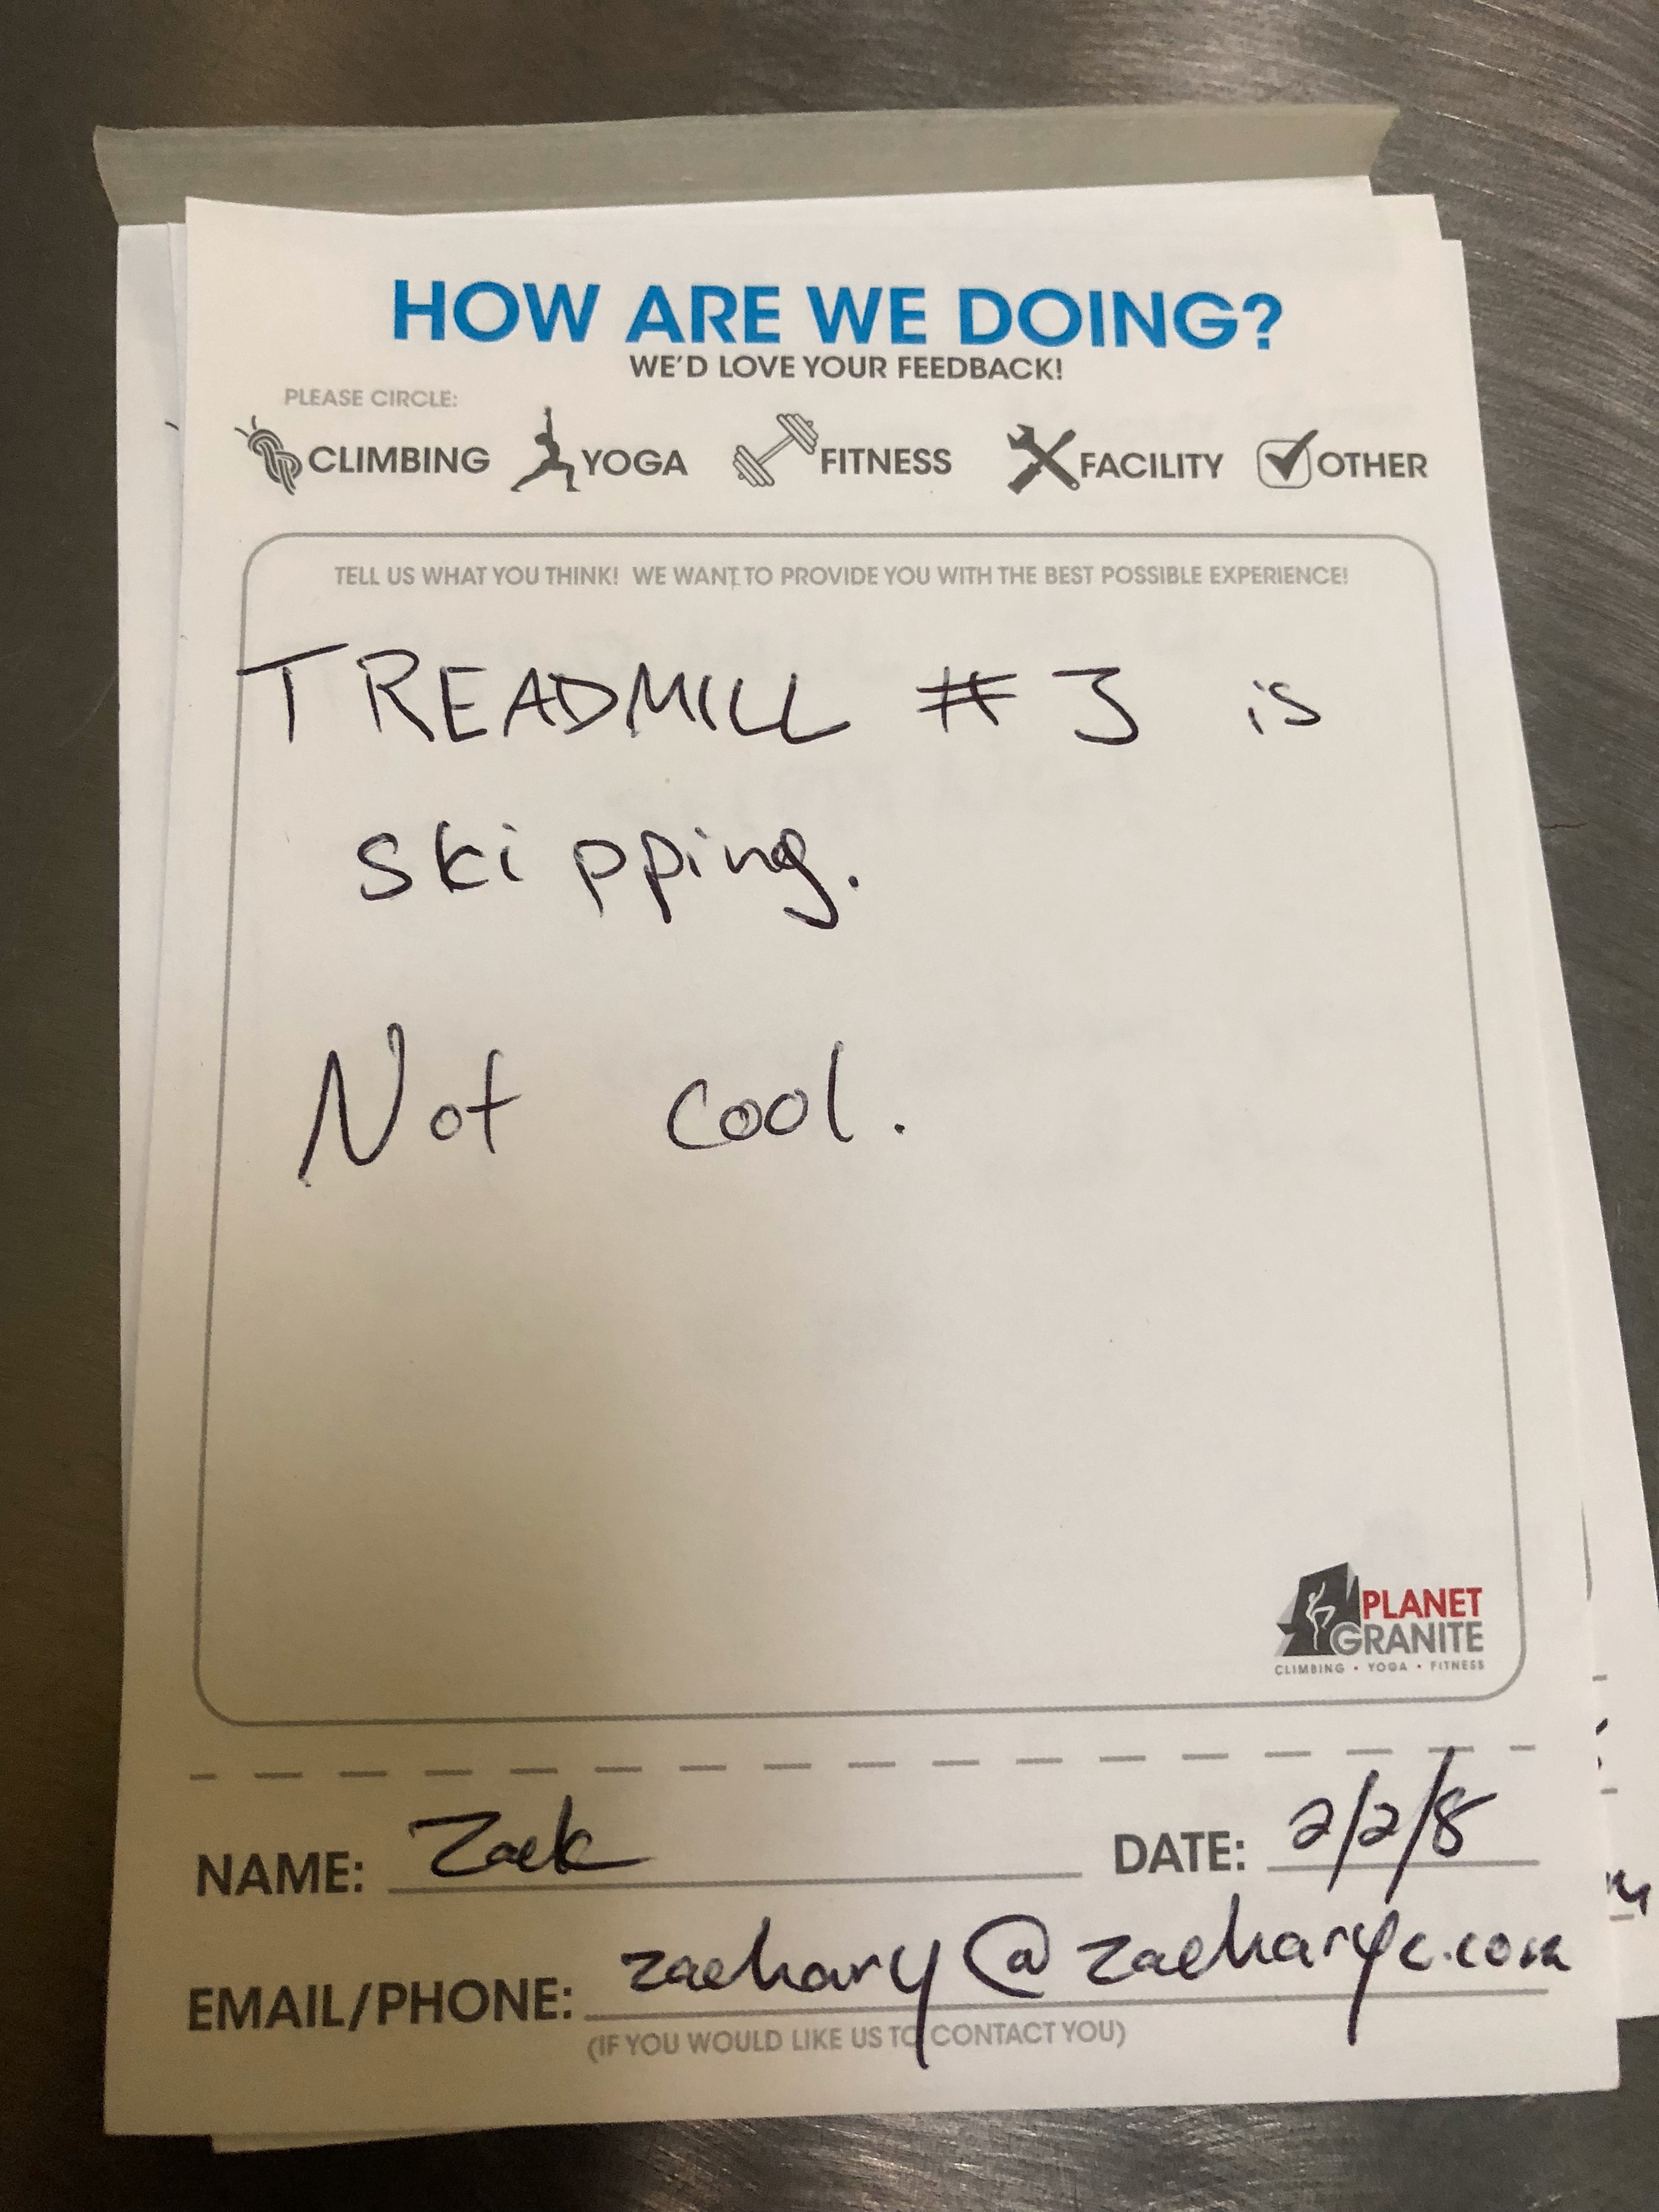 HOW ARE WE DOING?
WE'D LOVE YOUR FEEDBACK!
PLEASE CIRCLE:
CLIMBING YOGA FITNESS FACILITY OTHER
TELL US WHAT YOU THINK! WE WANT TO PROVIDE YOU WITH THE BEST POSSIBLE EXPERIENCE!
TREADMILL #3 is
skipping.
Not cool.
PLANET
GRANITE
CLIMBING • YOGA • FITNESS
NAME: Zack DATE: 2/2/8
EMAIL/PHONE: zachary@zacharyc.com
(IF YOU WOULD LIKE US TO CONTACT YOU)